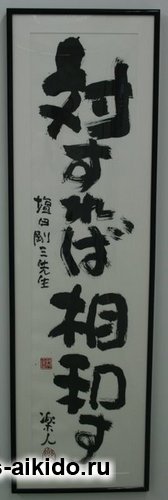 対すれば相和す
塩田剛三先生
楽人
s-aikido.ru